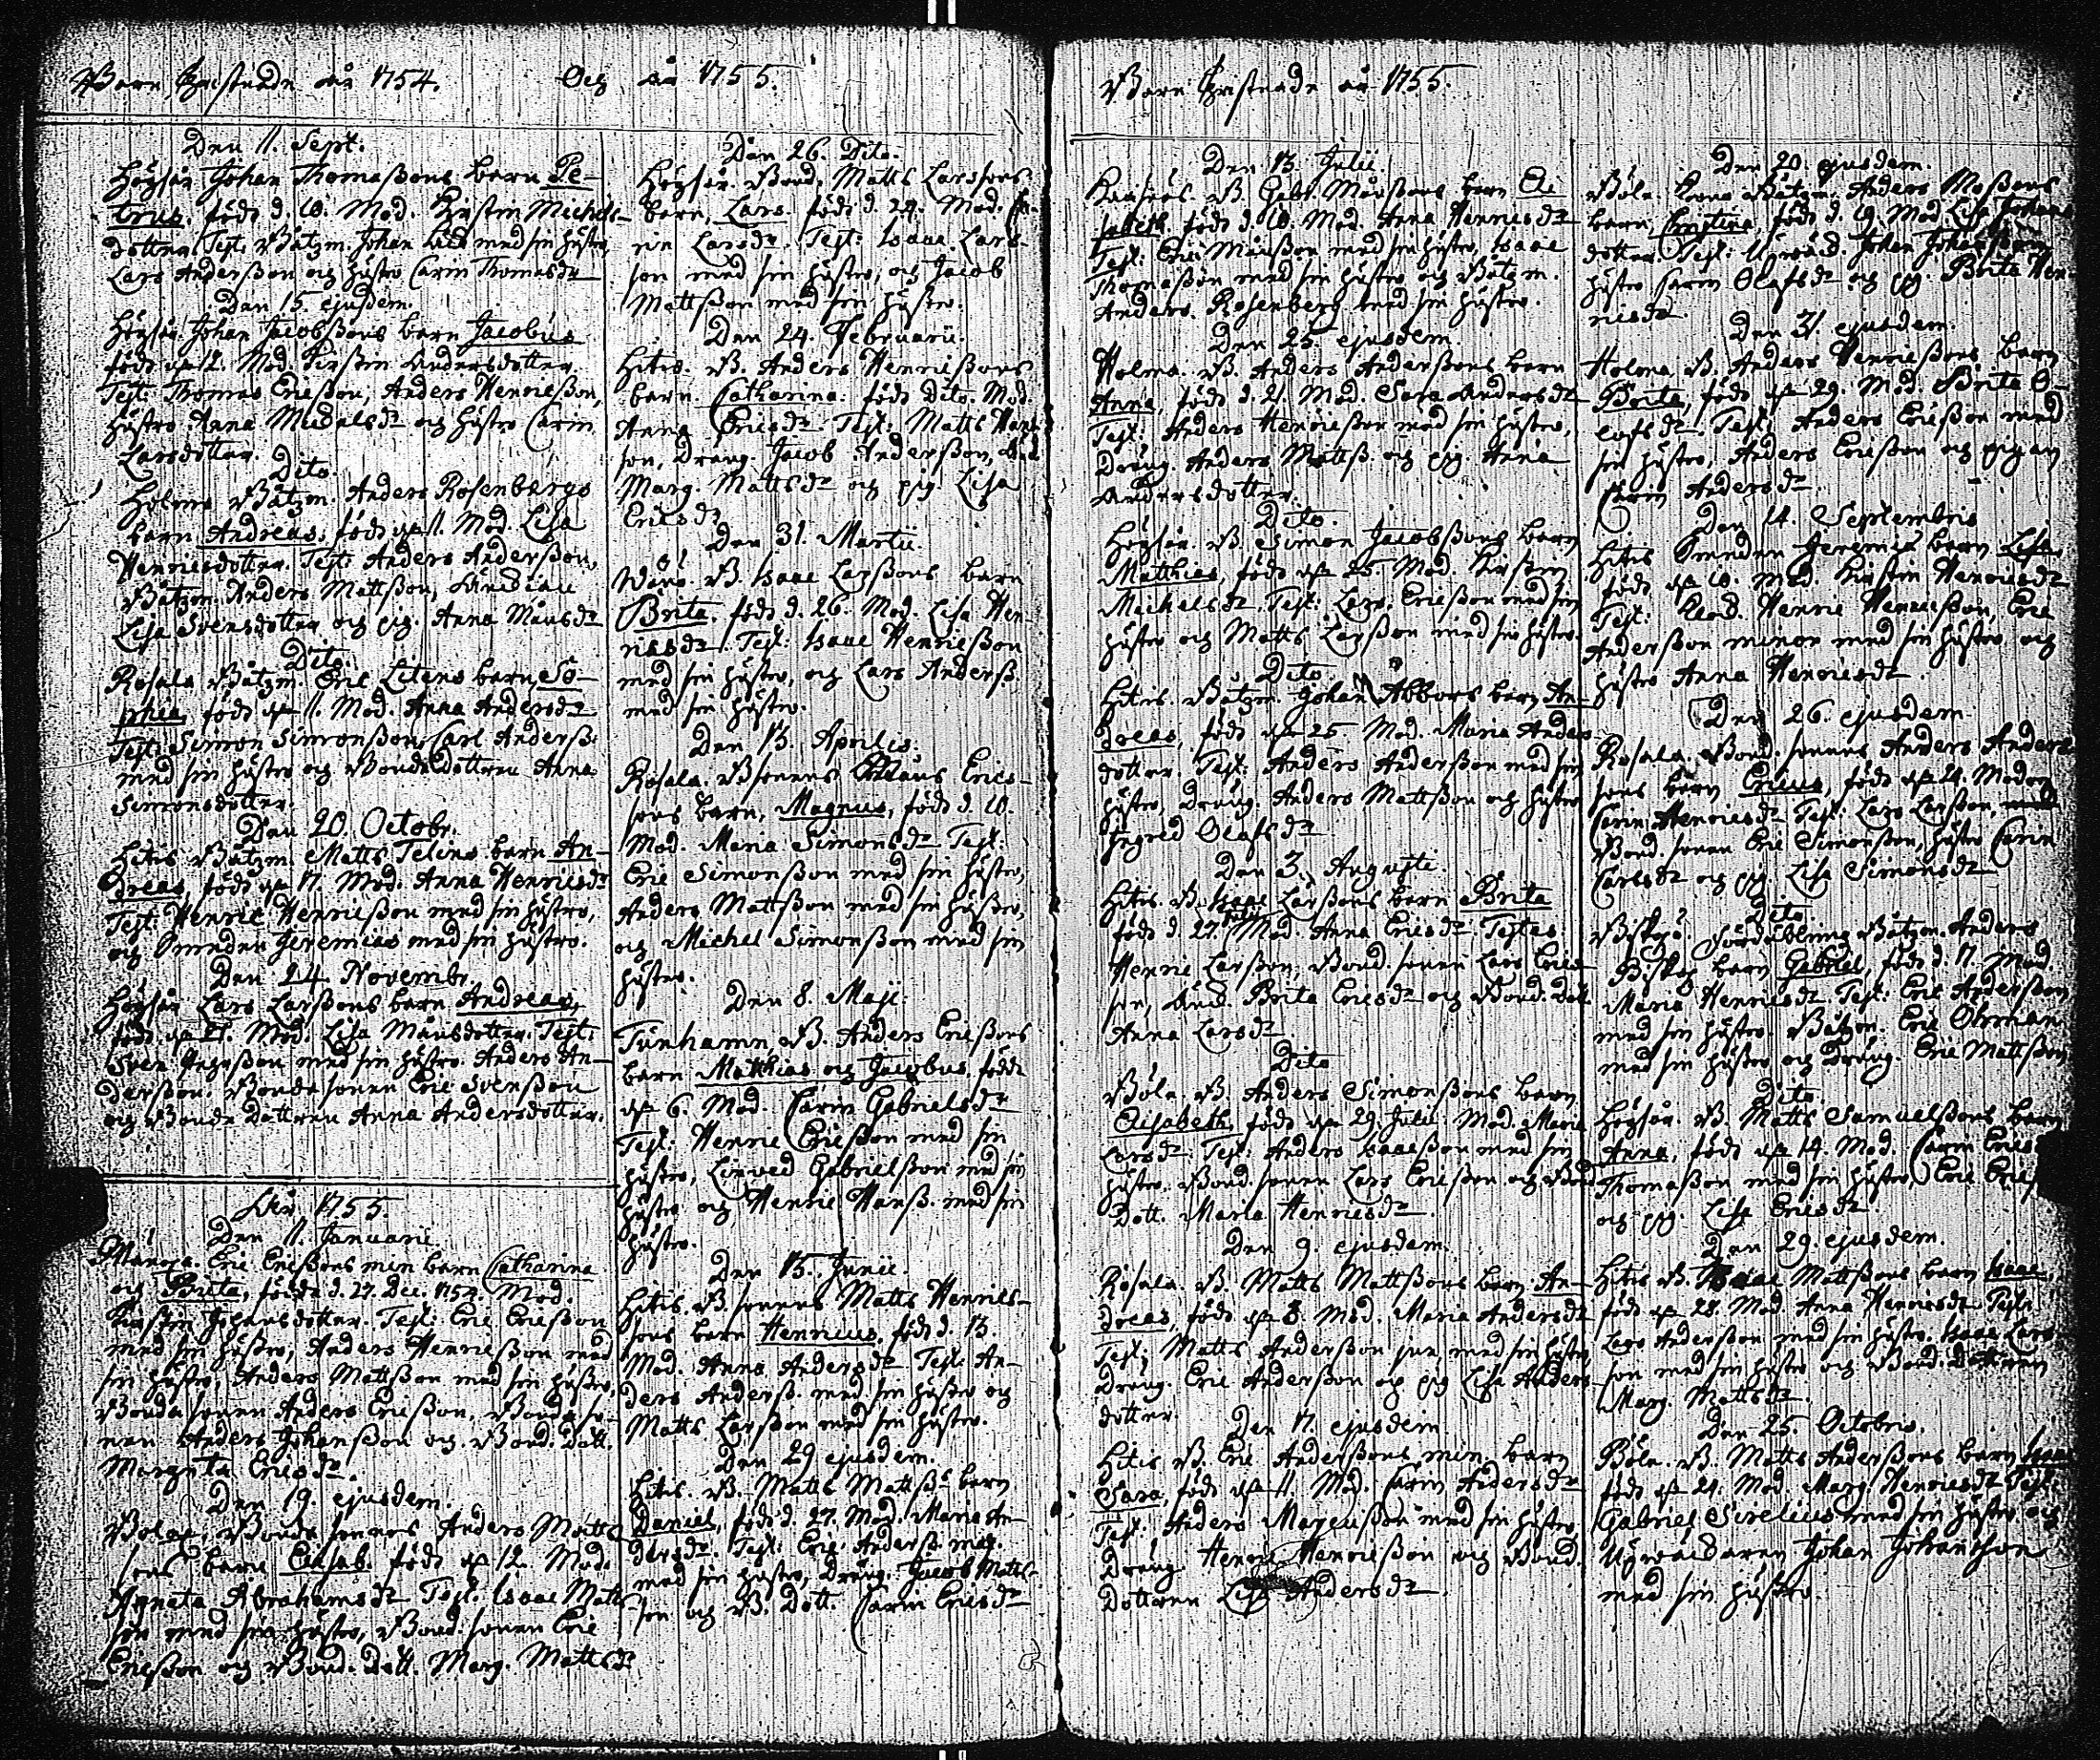 Barn Christnade åhr 1754. Och åhr 1755.
Den 11. Sept.
Högsår Johan Thomaßons barn Pe-
trus, född d. 10. Mod. Kirstin Michels-
dotter. Test: Båtzm. Johan med sin hustro,
Lars Anderßon och hustro Carin Thomasdr
Dan 15. ejusdem.
Högsår Johan Jacobßons barn Jacobus
född d. 12. Mod. Kirstin Andersdotter.
Test: Thomas Erißon, Anders Henrißon,
hustro Anna Michelsdr och hustro Carin
Larsdotter.
Dito
Holma Båtzm. Anders Rosenbergs
barn Andreas, född d. 11. Mod. Lisa
Henricsdotter. Test: Anders Anderßon,
Båtzm. Anders Mattßon,
Lisa Svensdotter och pig. Anna Månsdr
Dito.
Rosala Båtzm. Eric Litens barn So-
phia, född d. 11. Mod. Anna Andersdr
Test: Simon Simonßon, Carl Anderß.
med sin hustro och Bondedottren Anna
Simonsdotter.
Dan 20. Octobr.
Hitis Båtzm. Matts Telins barn An-
dreas, född d. 17. Mod. Anna Henricsdr
Test: Henric Henrißon med sin hustro,
och Smeden Jeremias med sin hustro.
Dan 24. Novembr.
Högsår Lars Larßons barn Andreas,
född d. 21. Mod. Lisa Månsdotter. Test:
Sven med sin hustro. Anders An-
derßon. Bonde sonen Eric Svenßon
och Bonde Dottren Anna Andersdotter.
Åhr 1755.
Dan 11. Januarii.
Eric Erißons min barn Catharina
och Brita, född d. 27. Dec. 1754. Mod.
Kirstin Johansdotter. Test: Eric Erißon
med sin hustro, Anders Henrißon med
sin hustro, Anders Mattßon med sin hustro,
Bonde sonen Anders Erißon, Bonde so-
nen Anders Johanßon och Bond. Dott.
Margeta Ericsdr.
Dan 19. ejusdem.
Bolax, Bonde sonens Anders Matts
sons barn Elisab. född d. 12. Mod.
Agneta Abrahamsdr Test. Isaac Matts
son med sin hustro, Bond. sonen Eric
Erißon och Bond. Dott. Marg. Mattsdr
Dan 26. Dito.
Högsår. Bond. Matts Larssons
barn, Lars. född d. 24. Mod. Ca-
rin Larsdr. Test: Isaac Lars-
son med sin hustro, och Jacob
Mattßon med sin hustro.
Dan 24. Februarii.
Hitis. B. Anders Henrißons
barn Catharina. född Dito. Mod.
Anna Ericsdr. Test: Matts
son, Dräng. Jacob Anderßon,
Marg. Mattsdr och pig. Lisa
Ericsdr
Dan 31. Martii.
Wänö. B. Isaac Larßons barn
Brita, född d. 26. Mod. Lisa Hen-
ricsdr. Test: Isaac Henrißon
med sin hustro, och Lars Anderß.
med sin hustro.
Dan 13. Aprilis.
Rosala. B. sonens Måns Erics-
sons barn, Magnus, född d. 10.
Mod. Maria Simonsdr Test:
Eric Simonßon med sin hustro,
Anders Mattßon med sin hustro,
och Michel Simonßon med sin
hustro.
Den 8. Maji.
Tunhamn B. Anders Erißons
barn Matthias och Jacobus, födde
d. 6. Mod. Carin Gabrielsdr
Test: Henric Erißon med sin
hustro, Gabrielßon med sin
hustro och Henric Hanß. med sin
hustro.
Dan 15. Junii.
Hitis. B. sonens Matts Henrics-
sons barn Henricus, född d. 13.
Mod. Anna Andersdr Test: An-
ders Anderß. med sin hustro och
Matts Larßon med sin hustro.
Dan 29 ejusdem.
Hitis. B. Matts Mattßs barn
Daniel, född d. 27. Mod. Maria An-
dersdr. Test: Eric Anderß. maj.
med sin hustro, Dräng. Jacob Matts-
son och B. Dott. Carin Ericsdr
Barn Christnade åhr 1755.
Dan 13. Julii
B. Gabr. Månßons barn Eli-
sabeth född d. 10. Mod. Anna Henricsdr
Test: Eric Månßon med sin hustro, Isaac
Thomaßon med sin hustro och Båtzm.
Anders Rosenberg med sin hustro.
Dan 25. ejusdem.
Holma. B. Anders Anderßons barn
Anna, född d. 21. Mod. Sara Andersdr
Test: Anders Henrißon med sin hustro,
Dräng. Anders Mattß. och pig. Anna
Andersdotter.
Dito.
Högsår. B. Simon Jacobßons barn
Matthias, född d. 25 Mod. Kirstin
Michelsdr, Test: Lars Erißon med sin
hustro och Matts Larßon med sin hustro.
Dito
Hitis. Båtzm. Johan Abbors barn An-
dreas, född d. 25. Mod. Maria Anders
dotter. Test: Anders Anderßon med sin
hustro, Dräng. Anders Mattßon och hustro
Ingred Olafsdr
Dan 3. Augusti.
Hitis. B. Isaac Larßons barn Brita
född d. 27. Julii Mod. Anna Ericsdr Testes
Henric Larßon, Bond. sonen Lars Erics-
son, Brita Ericsdr och Bond. Dott.
Anna Larsdr
Dito
Böle. B. Anders Simonßons barn
Elisabeth, född d. 29. Julii. Mod. Maria
Larsdr. Test: Anders Isaacßon med sin
hustro. Bond. sonen Lars Erißon och Bond
Dott. Maria Henricsdr.
Dan 9. ejusdem.
Rosala. B. Matts Mattßons barn An-
dreas, född d. 8. Mod. Maria Andersdr
Test: Matts Anderßon jun. med sin hustro
Dräng. Eric Anderßon och pig Lisa Anders
dotter.
Den 17. ejusdem
Hitis B. Eric Anderßons min. barn
Sara, född d. 11. Mod. Carin Andersdr
Test. Anders Marcußon med sin hustro,
Dräng. Henric Henrißon och Bond.
Dottren Lisa Andersdr.
Den 20. ejusdem.
Böle. Båtzm. Anders Moßens
barn Christina, född d. 19. Mod. Lisa Johans
dotter. Test: Johan Johanßons
hustro Carin Olafsdr och pig. Brita Hen-
ricsdr.
Dan 31. ejusdem.
Holma. B. Anders Henrißons barn
Brita, född d. 29. Mod. Brita O-
lofsdr. Test: Anders Erißon med
sin hustro, Anders Erißon och pigan
Carin Andersdr.
Dan 14. Septembris
Hitis Smeden Jeremias barn Lisa
född d. 10. Mod. Kirstin Henricsdr
Test: Henric Henrißon, Eric
Anderßon minor med sin hustro och
hustro Anna Henricsdr.
Den 26. ejusdem
Rosala. Bond. sonens Anders Anders
sons barn Ericus, född d. 24. Modren
Carin Henricsdr Test: Lars Larßon,
Bond. sonen Eric Simonßon, hustro Carin
Carlsdr och pig Lisa Simonsdr
Dito.
Båtzm. Anders
Biskop barn Gabriel, född d. 17. Mod.
Maria Henricsdr Test: Eric Anderßon
med sin hustro. Båtzm. Eric Öhrman
med sin hustro och Dräng. Eric Mattßon
Dito.
Högsår. B. Matts Samuelßons barn
Anna, född d. 14. Mod. Carin Erics
Thomaßon med sin hustro, Eric
och pig. Lisa Ericsdr
Dan 29. ejusdem.
Hitis B. Isaac Mattßons barn Isaac,
född d. 28. Mod. Anna Henricsdr Test:
Lars Anderßon med sin hustro. Isaac Lars-
son med sin hustro och Bond. Dottren
Marg. Mattsdr.
Dan 25. Octobris.
Böle. B. Matts Anderßons barn Isaac
född d. 24. Mod. Marg. Henricsdr Test.
Gabriel Sirelius med sin hustro och
Johan Johansson
med sin hustro.